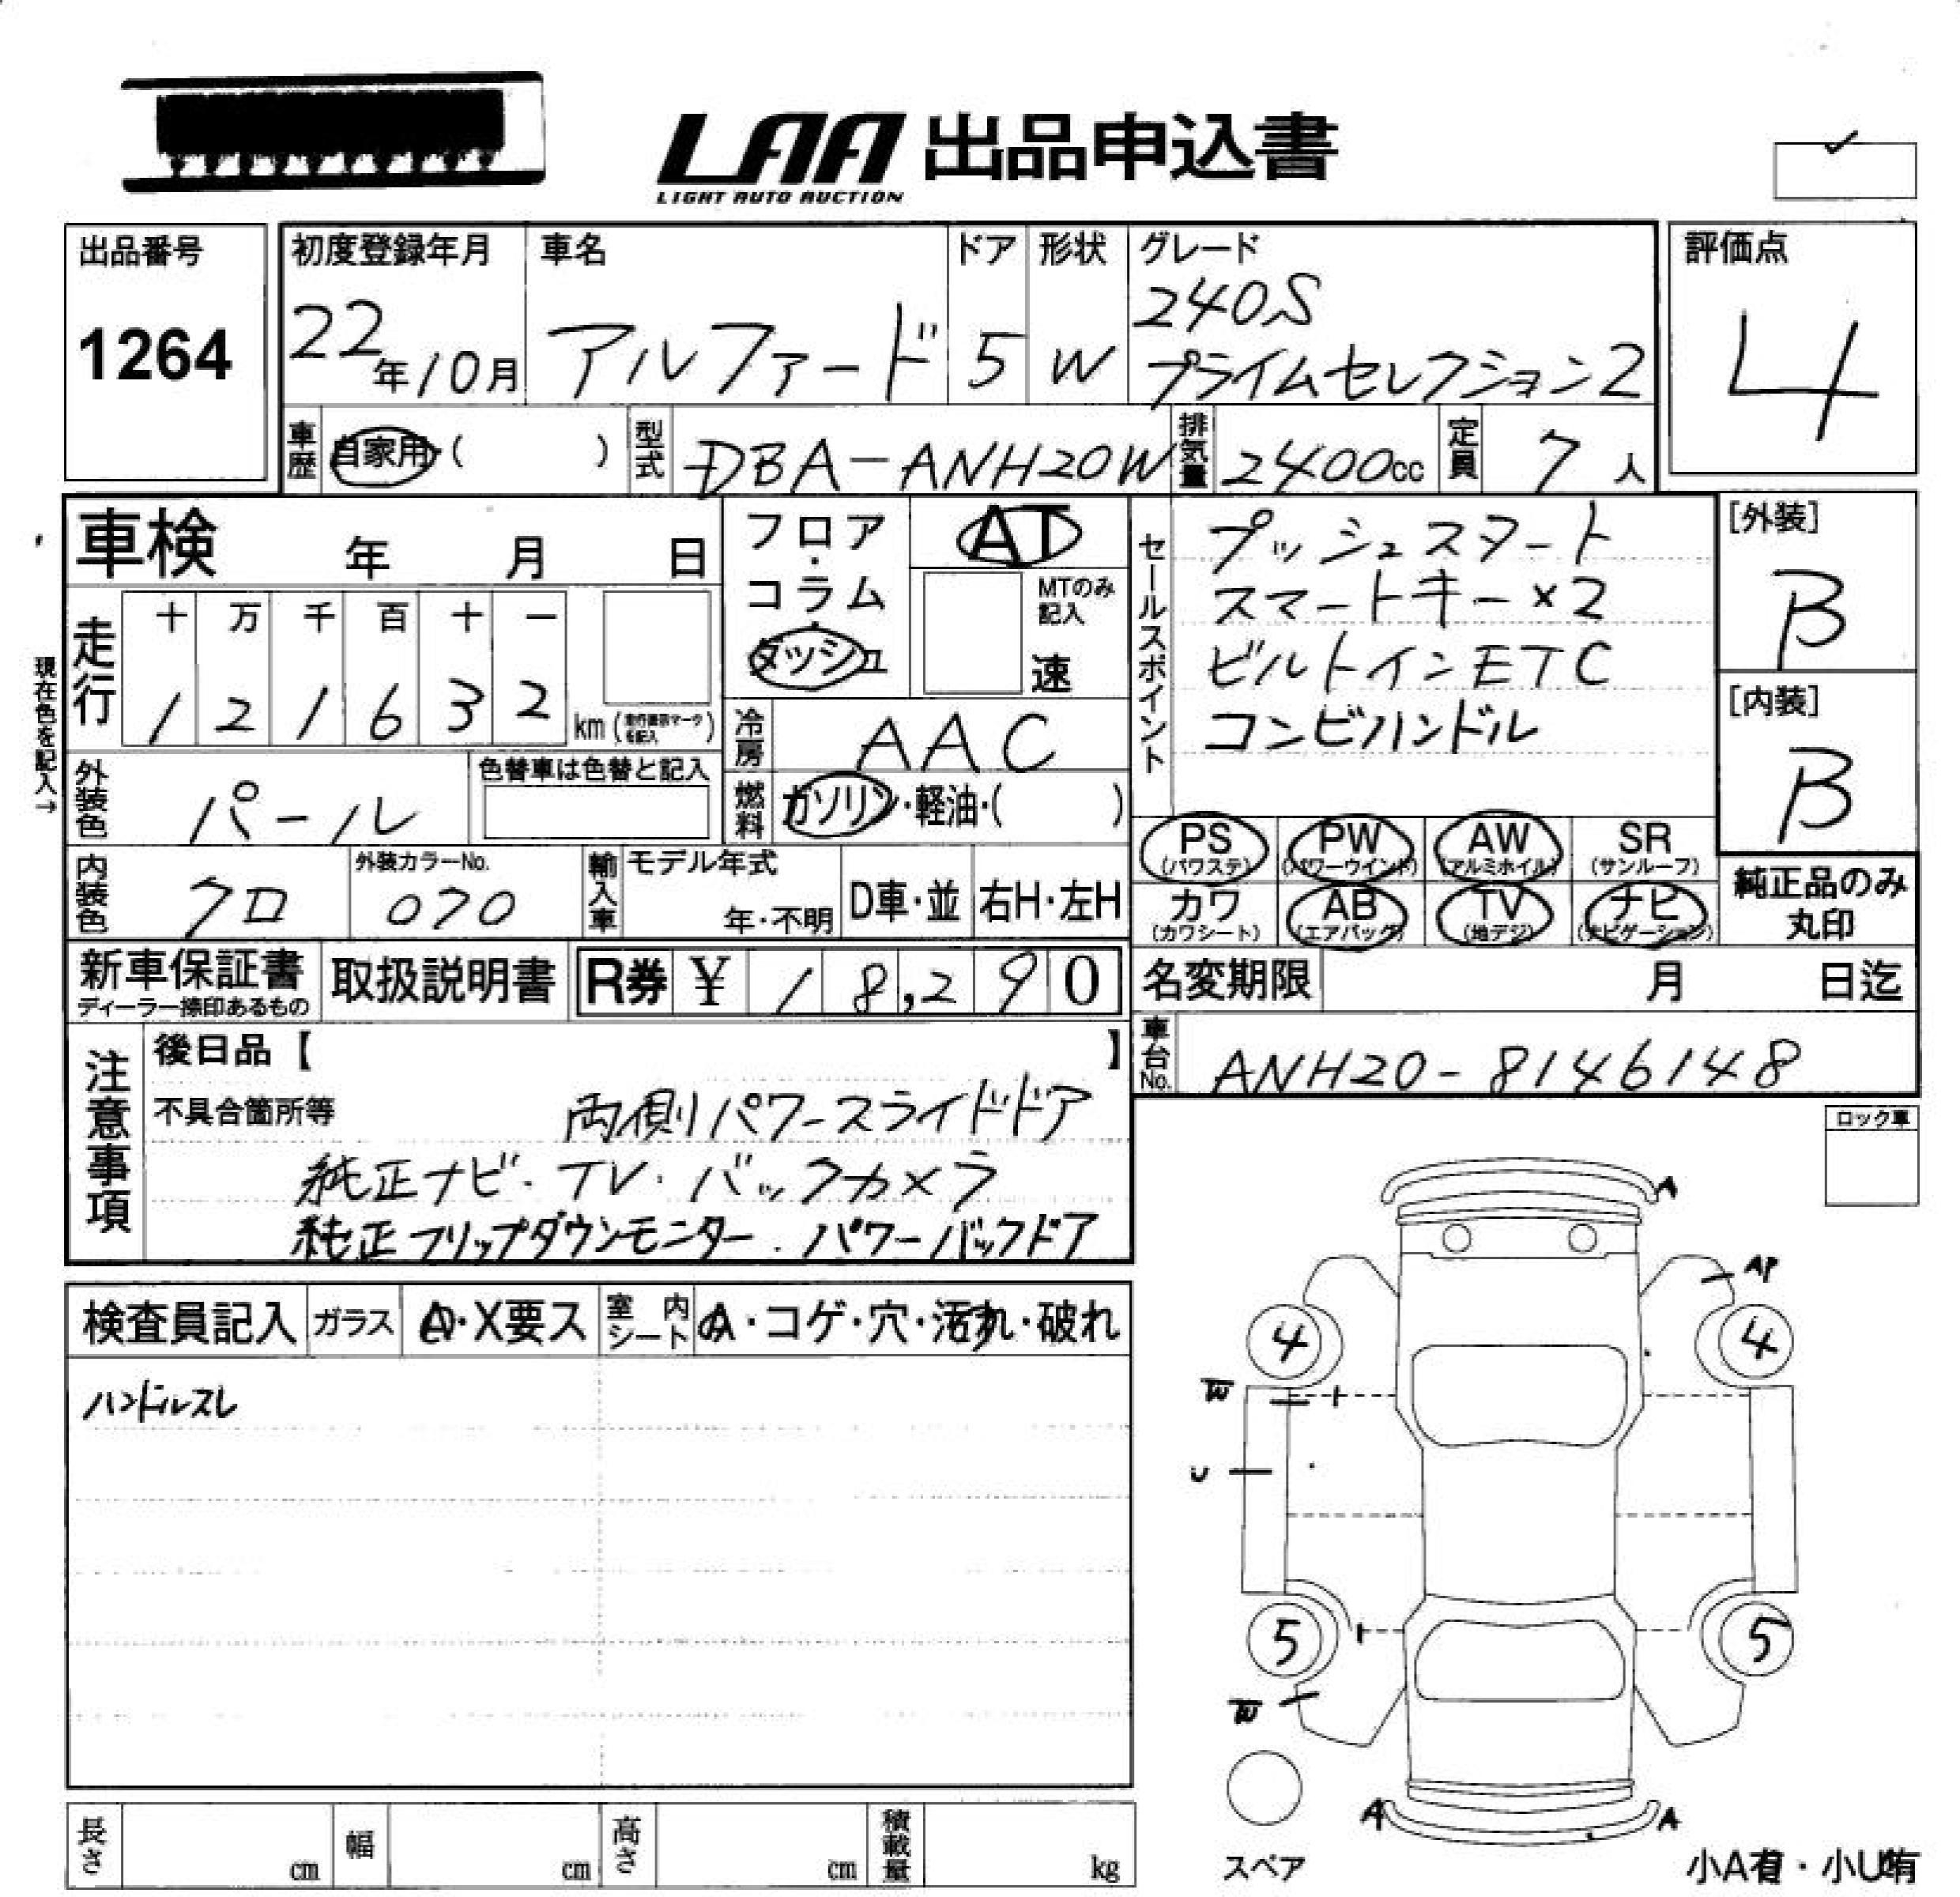 LAA 出品申込書
LIGHT AUTO AUCTION
出品番号 初度登録年月 車名 ドア 形状 グレード 評価点
1264 22年10月 アルファード 5 W 240S プライムセレクション2 4
車歴 自家用・( ) 型式 DBA-ANH20W 排気量 2400cc 定員 7人
車検 年 月 日
フロア・コラム・ダッシュ AT
MTのみ記入 速
セールスポイント
プッシュスタート
スマートキー×2
ビルトインETC
コンビハンドル
[外装] B
[内装] B
現在色を記入→
走行 十 万 千 百 十 一
1 2 1 6 3 2 km
冷房 AAC
外装色 パール 色替車は色替と記入
燃料 ガソリン・軽油・( )
PS (パワステ) PW (パワーウインド) AW (アルミホイル) SR (サンルーフ)
カワ (カワシート) AB (エアバッグ) TV (地デジ) ナビ (ナビゲーション)
純正品のみ丸印
内装色 クロ 外装カラーNo. 070 輸入車 モデル年式 年・不明 D車・並 右H・左H
新車保証書 ディーラー捺印あるもの 取扱説明書 R券 ¥ 18,290
名変期限 月 日迄
車台No. ANH20-8146148
注意事項 後日品【 】
不具合箇所等 両側パワースライドドア
純正ナビ・TV・バックカメラ
純正フリップダウンモニター・パワーバックドア
ロック車
検査員記入 ガラス A・X要ス 室内シート A・コゲ・穴・汚れ・破れ
ハンドルスレ
A
AP
4 4
W
U
5 5
W
A A
スペア
小A有・小U有
長さ cm 幅 cm 高さ cm 積載量 kg